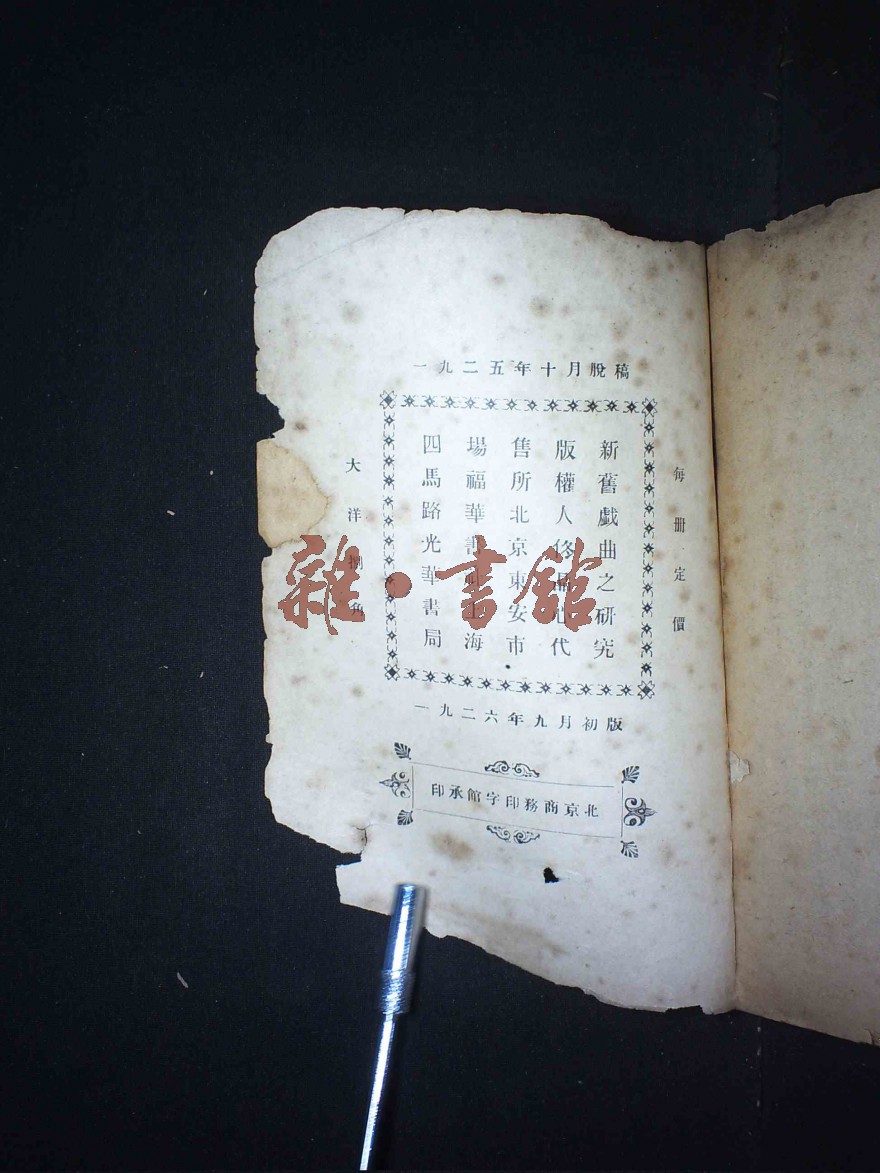 一九二五年十月脫稿
每册定價
新舊戲曲之研究
版權人佟晶心代
售所北京東安市
場福華書社上海
四馬路光華書局
大洋捌角
一九二六年九月初版
北京商務印字館承印
雜·書館